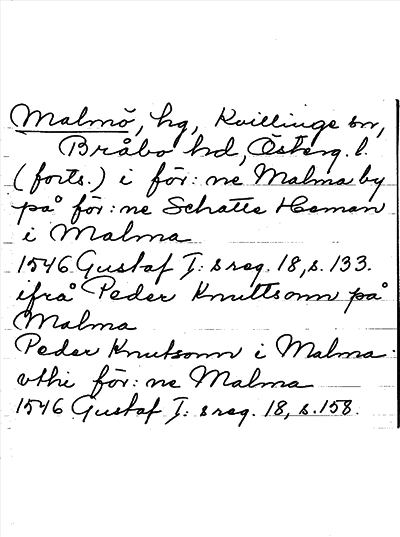 Malmö, hg, Kvillinge sn,
Bråbo hd, Österg. l.
(forts.) i för: ne Malma by
på för: ne Schatte Heman
i Malma
1546 Gustaf I: s reg. 18, s. 133.
ifrå Peder Knuttsonn på
Malma
Peder Knutsonn i Malma
vthi för: ne Malma
1546 Gustaf I: s reg. 18, s. 158.